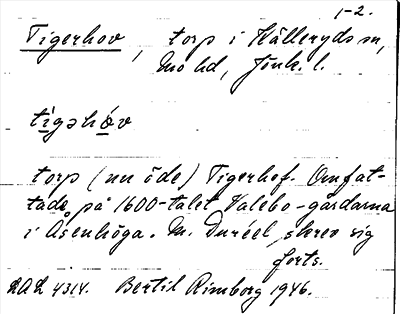 1-2.
Tigerhov, torp i Källeryds sn,
Mo hd, Jönk. l.
tigəhóv
torp (nu öde) Tigerhof. Omfat-
tade på 1600-talet Valebo-gårdarna
i Åsenhöga. M. Duréel skrev sig
forts.
DAL 4314. Bertil Rimborg 1946.